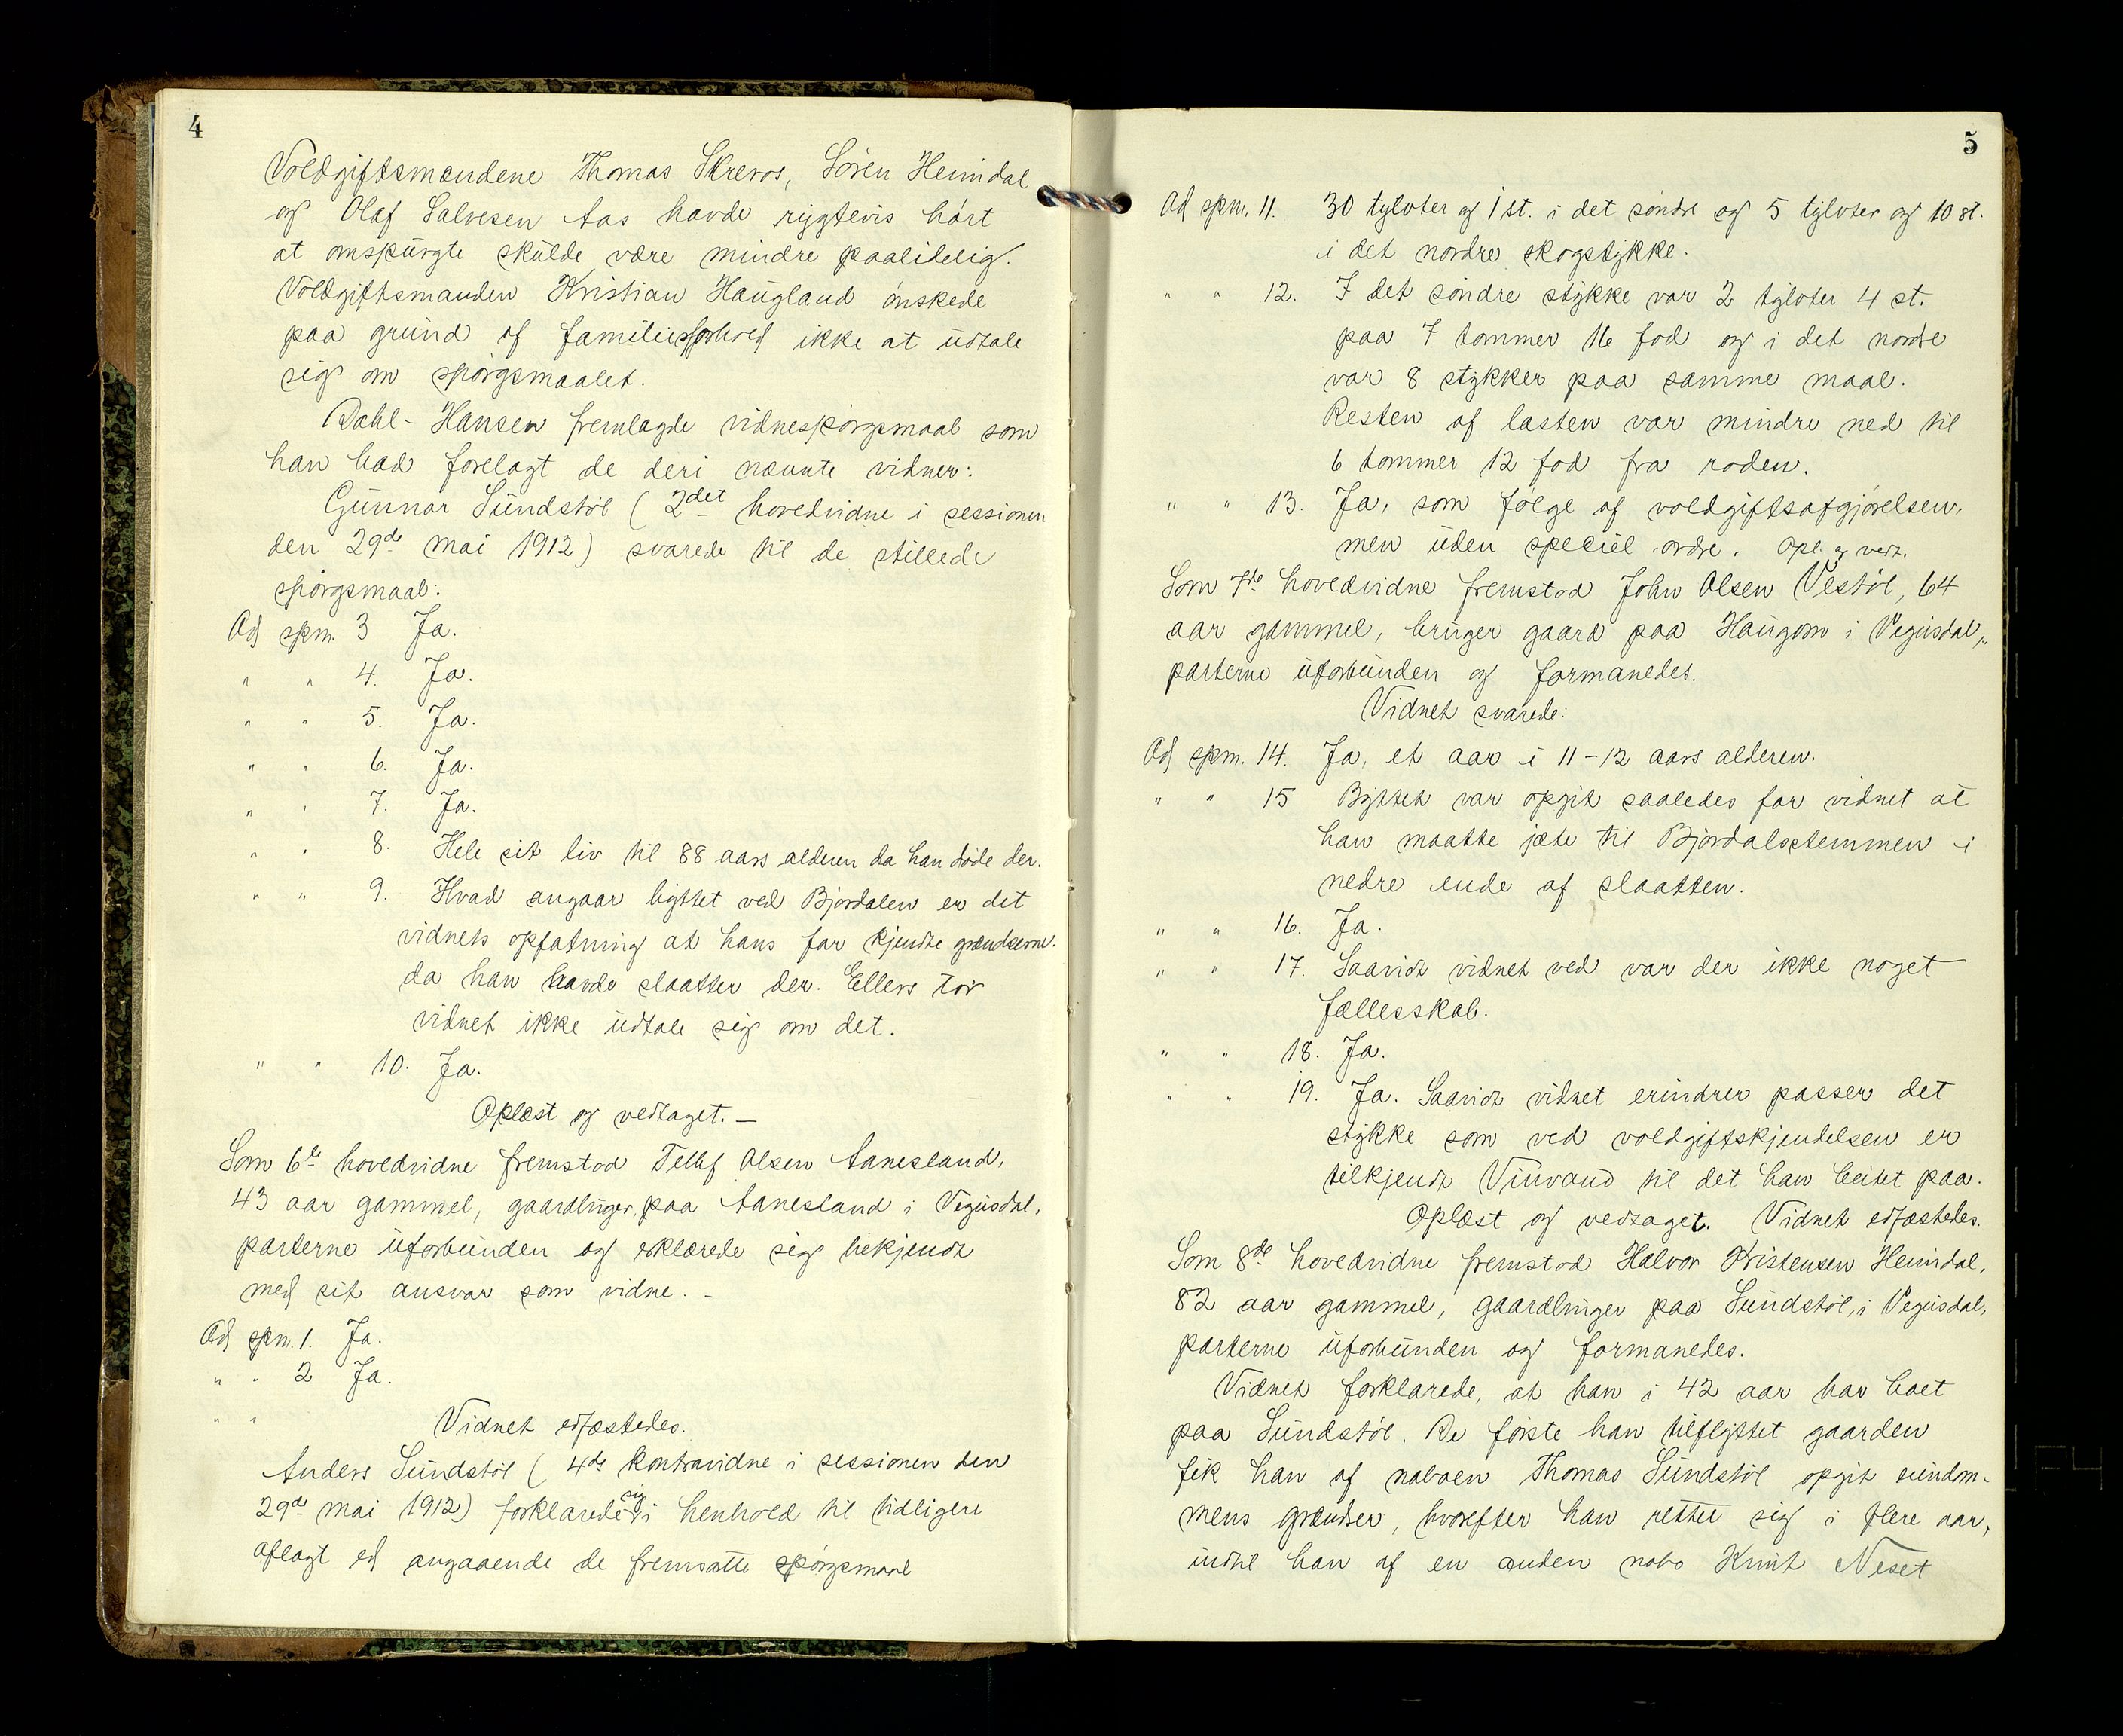 4
Voldgiftsmændene Thomas Skreros, Sören Heimdal
og Olaf Salvesen Aas havde rygtevis hört
at omspurgte skulde være mindre paalidelig.
Voldgiftsmanden Kristian Haugland önskede
paa grund af familieforhold ikke at udtale
sig om spörgsmaalet.
Dahl-Hansen fremlagde vidnespörgsmaal som
han bad forelagt de deri nævnte vidner:
Gunnar Sundstöl (2det hovedvidne i sessionen
den 29de mai 1912) svarede til de stillede
spörgsmaal:
Ad spm. 3 Ja.
" " 4. Ja.
" " 5. Ja.
" " 6. Ja.
" " 7. Ja.
" " 8. Hele sit liv til 88 aars alderen da han döde der.
" " 9. Hvad angaar byttet ved Bjordalen er det
vidnets opfatning at hans far kjendte grændserne.
da han havde slaatter der. Ellers tör
vidnet ikke udtale sig om det.
" " 10. Ja.
Oplæst og vedtaget. —
Som 6te hovedvidne fremstod Tellef Olsen Aanesland,
43 aar gammel, gaardbruger, paa Aanesland i Vegusdal,
parterne uforbunden og erklærede sig bekjendt
med sit ansvar som vidne. -
Ad spm. 1. Ja.
" " 2 Ja.
" " Vidnet edfæstedes.
Anders Sundstöl (4de kontravidne i sessionen den
29de mai 1912) forklarede sig i henhold til tidligere
aflagt ed angaaende de fremsatte spörgsmaal
5
Ad spm. 11. 30 tylvter og 1 st. i det söndre og 5 tylvter og 10 st.
i det nordre skogstykke.
" " 12. I det söndre stykke var 2 tylvter 4 st.
paa 7 tommer 16 fod og i det nordre
var 8 stykker paa samme maal.
Resten af lasten var mindre ned til
6 tommer 12 fod fra roden.
" " 13. Ja, som fölge af voldgiftsafgjörelsen,
men uden speciel ordre. Opl. og vedt.
Som 7de hovedvidne fremstod John Olsen Vestöl, 64
aar gammel, bruger gaard paa Haugom i Vegusdal,
parterne uforbunden og formanedes.
Vidnet svarede:
Ad spm. 14. Ja, et aar i 11-12 aars alderen.
" " 15 Byttet var opgit saaledes for vidnet at
han maatte jæte til Bjordalsstemmen i
nedre ende af slaatten.
" " 16. Ja.
" " 17. Saavidt vidnet ved var der ikke noget
fællesskab.
" " 18. Ja.
" " 19. Ja. Saavidt vidnet erindrer passer det
stykke som ved voldgiftskjendelsen er
tilkjendt Vinvand til det han beitet paa.
Oplæst og vedtaget. Vidnet edfæstedes.
Som 8de hovedvidne fremstod Halvor Kristensen Heimdal,
82 aar gammel, gaardbruger paa Sundstöl, i Vegusdal,
parterne uforbunden og formanedes.
Vidnet forklarede, at han i 42 aar har boet
paa Sundstöl. De förste han tilflyttet gaarden
fik han af naboen Thomas Sundstöl opgit eiendom-
mens grændser, hvorefter han rettet sig i flere aar,
indtil han af en anden nabo Knut Neset